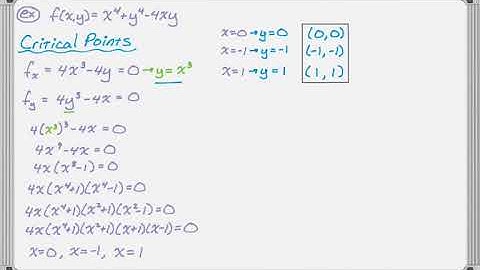 ex f(x,y) = x⁴+y⁴-4xy
Critical Points
fₓ = 4x³-4y = 0 → y = x³
f_y = 4y³-4x = 0
4(x³)³-4x = 0
4x⁹-4x = 0
4x(x⁸-1) = 0
4x(x⁴+1)(x⁴-1) = 0
4x(x⁴+1)(x²+1)(x²-1) = 0
4x(x⁴+1)(x²+1)(x+1)(x-1) = 0
x=0, x=-1, x=1
x=0 → y=0 (0,0)
x=-1 → y=-1 (-1,-1)
x=1 → y=1 (1,1)